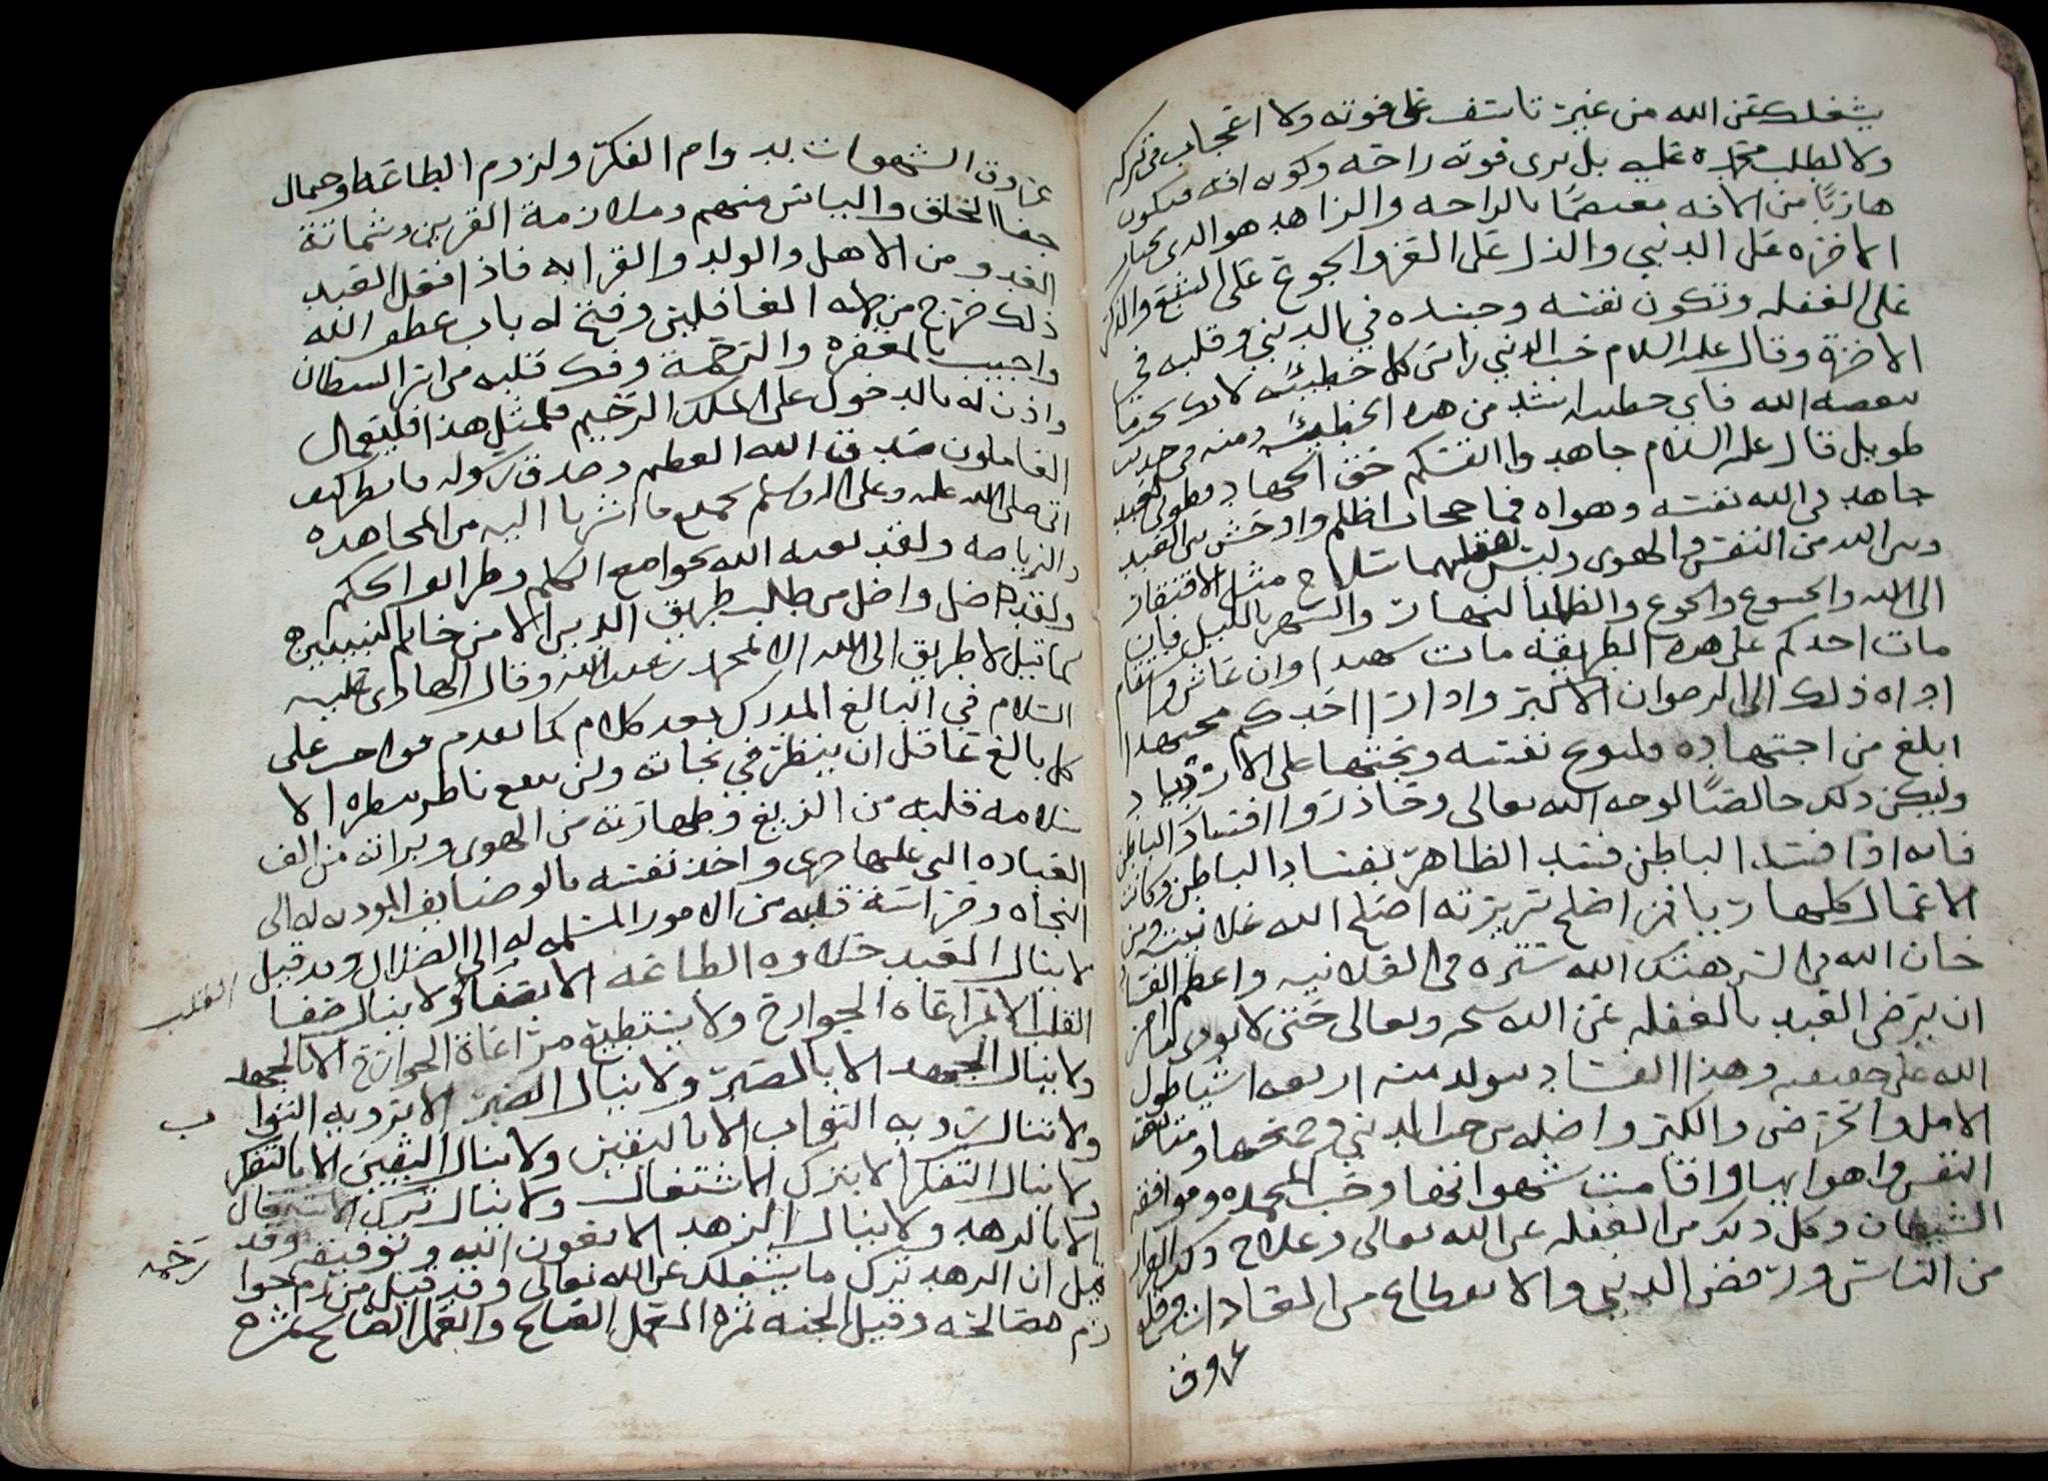 يشغلك عن الله من غير تاسف على فوته ولا اعجاب في تركه
ولا لطلب محمده عليه بل يرى فوته راحه وكونه افه فيكون
هاربًا من الافه معتصمًا بالراحه والزاهد هو الذي يختار
الاخره على الدنيى والذل على العز والجوع على الشبع والذكر
على الغفله وتكون نفسه وجسده في الدنيى وقلبه في
الاخرة وقال عليه السلام حب الدنيى راس كل خطيئه لانك تحب ما
يبغضه الله فاي خطيئه اشد من هذه الخطيئه ومنه في حديث
طويل قال عليه السلام جاهدوا انفسكم حق الجهاد فطوبى لعبد
جاهد في الله نفسه وهواه فما حجاب اظلم واوحش بين العبد
وبين الله من النفس والهوى وليس لقتلهما سلاح مثل الافتقار
الى الله والخشوع والجوع والظما بالنهار والسهر بالليل فان
مات احدكم على هذه الطريقه مات شهيدا وان عاش واستقام
اداه ذلك الى الرضوان الاكبر واذا راا احدكم مجتهدا
ابلغ من اجتهاده فليوبخ نفسه ويحثها على الازدياد
وليكن ذلك خالصًا لوجه الله تعالى وحاذروا افساد الباطن
فانه اذا فسد الباطن فسد الظاهر بفساد الباطن وكانت
الاعمال كلها ريا فمن اصلح سريرته اصلح الله علانيته ومن
خان الله في السر هتك الله ستره في العلانيه واعظم الفساد
ان يرضى العبد بالغفله عن الله سبحنه وتعالى حتى لا يودي اوامر
الله على حقيقه وهذا الفساد يتولد منه اربعه اشيا طول
الامل والحرص والكبر واصله من حب الدنيى وجمعها ومتابعه
النفس واهوايها واقامت شهواتها وحب المحمده وموافقه
الشيطان وكل ذلك من الغفله عن الله تعالى وعلاج ذلك الفرار
من الناس ورفض الدنيى والانقطاع من العادات وقطع
عروق
عروق الشهوات بدوام الفكر ولزوم الطاعه واحتمال
جفا الخلق والياس منهم وملازمة القرين وشماتة
العدو من الاهل والولد والقرابه فاذا فعل العبد
ذلك خرج من ظلمه الغافلين وفتح له باب عطف الله
واجيب بالمغفره والرحمة وفك قلبه من اسر الشيطان
واذن له بالدخول على الملك الرحيم فلمثل هذا فليعمل
العاملون صدق الله العظيم وصدق رسوله فانظر كيف
اتى صلى الله عليه وعلى اله وسلم بجميع ما اشرنا اليه من المجاهده
والرياضه ولقد بعثه الله بجوامع الكلم وطرايق الحكم
ولقد ضل واضل من طلب طريق الدين الا من خاتم النبيين
كما قيل لا طريق الى الله الا لمحمد بن عبدالله وقال الهادي عليه
السلام في البالغ المدرك بعد كلام كما تقدم فواجب على
كل بالغ عاقل ان ينظر في نجاته ولن ينفع ناظر بنظره الا
بسلامه قلبه من الزيغ وطهارته من الهوى وبراته من الف
العباده التي عليها جرى واخذ نفسه بالوضايف المودته له الى
النجاه وحراسة قلبه من الامور المسلمه له الى الضلال وقد قيل
لا ينال العبد حلاوه الطاعه الا بصفا ولا ينال صفا
القلب
القلب الا بمراعاه الجوارح ولا يستطيع مراعاة الجوارح الا بالجهد
ولا ينال الجهد الا بالصبر ولا ينال الصبر الا برويه الثوا
ب
ولا تنال رويه الثواب الا باليقين ولا ينال اليقين الا بالتفكر
ولا ينال التفكر الا بترك الاشتغال ولا ينال ترك الاشتغال
الا بالزهد ولا ينال الزهد الا بعون الله وتوفيقه وقد
رحمه
قيل ان الزهد ترك ما يشغلك عن الله تعالى وقد قيل من زم جوا
زم مصالحه وقيل الجنه ثمره العمل الصالح والعمل الصالح ثمره